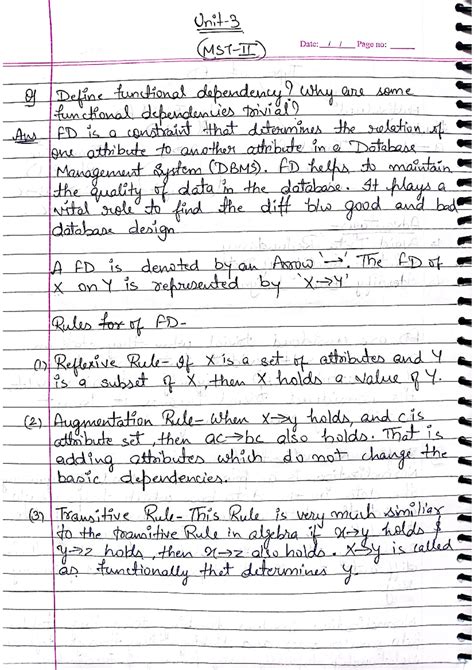 Unit-3
(MST-II)
Date: / / Page no:
Q1 Define functional dependency? Why are some
functional dependencies trivial?
Ans FD is a constraint that determines the relation of
one attribute to another attribute in a Database
Management System (DBMS). FD helps to maintain
the quality of data in the database. It plays a
vital role to find the diff b/w good and bad
database design
A FD is denoted by an Arrow '→'. The FD of
X on Y is represented by 'X→Y'
Rules for of FD-
(1) Reflexive Rule- If X is a set of attributes and Y
is a subset of X, then X holds a value of Y.
(2) Augmentation Rule- When x→y holds, and c is
attribute set, then ac→bc also holds. That is
adding attributes which do not change the
basic dependencies.
(3) Transitive Rule- This Rule is very much similiar
to the transitive Rule in algebra if x→y holds &
y→z holds, then x→z also holds. X→y is called
as functionally that determines y.